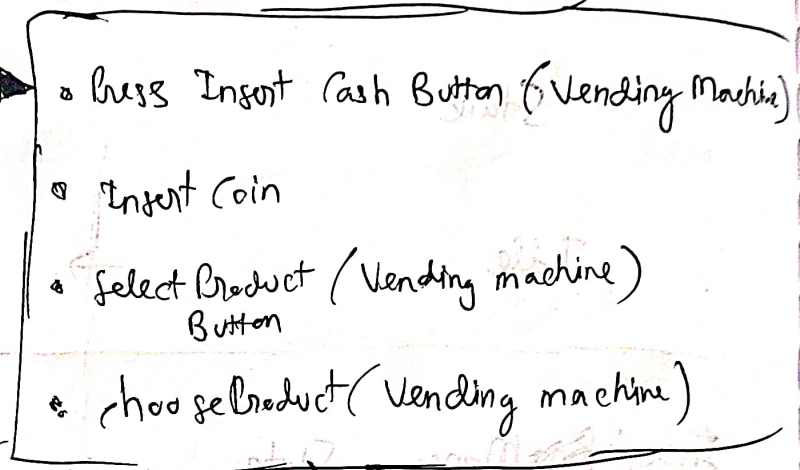 Press Insert Cash Button (Vending Machine)
Insert Coin
Select Product (Vending machine)
Button
chooseProduct (Vending machine)